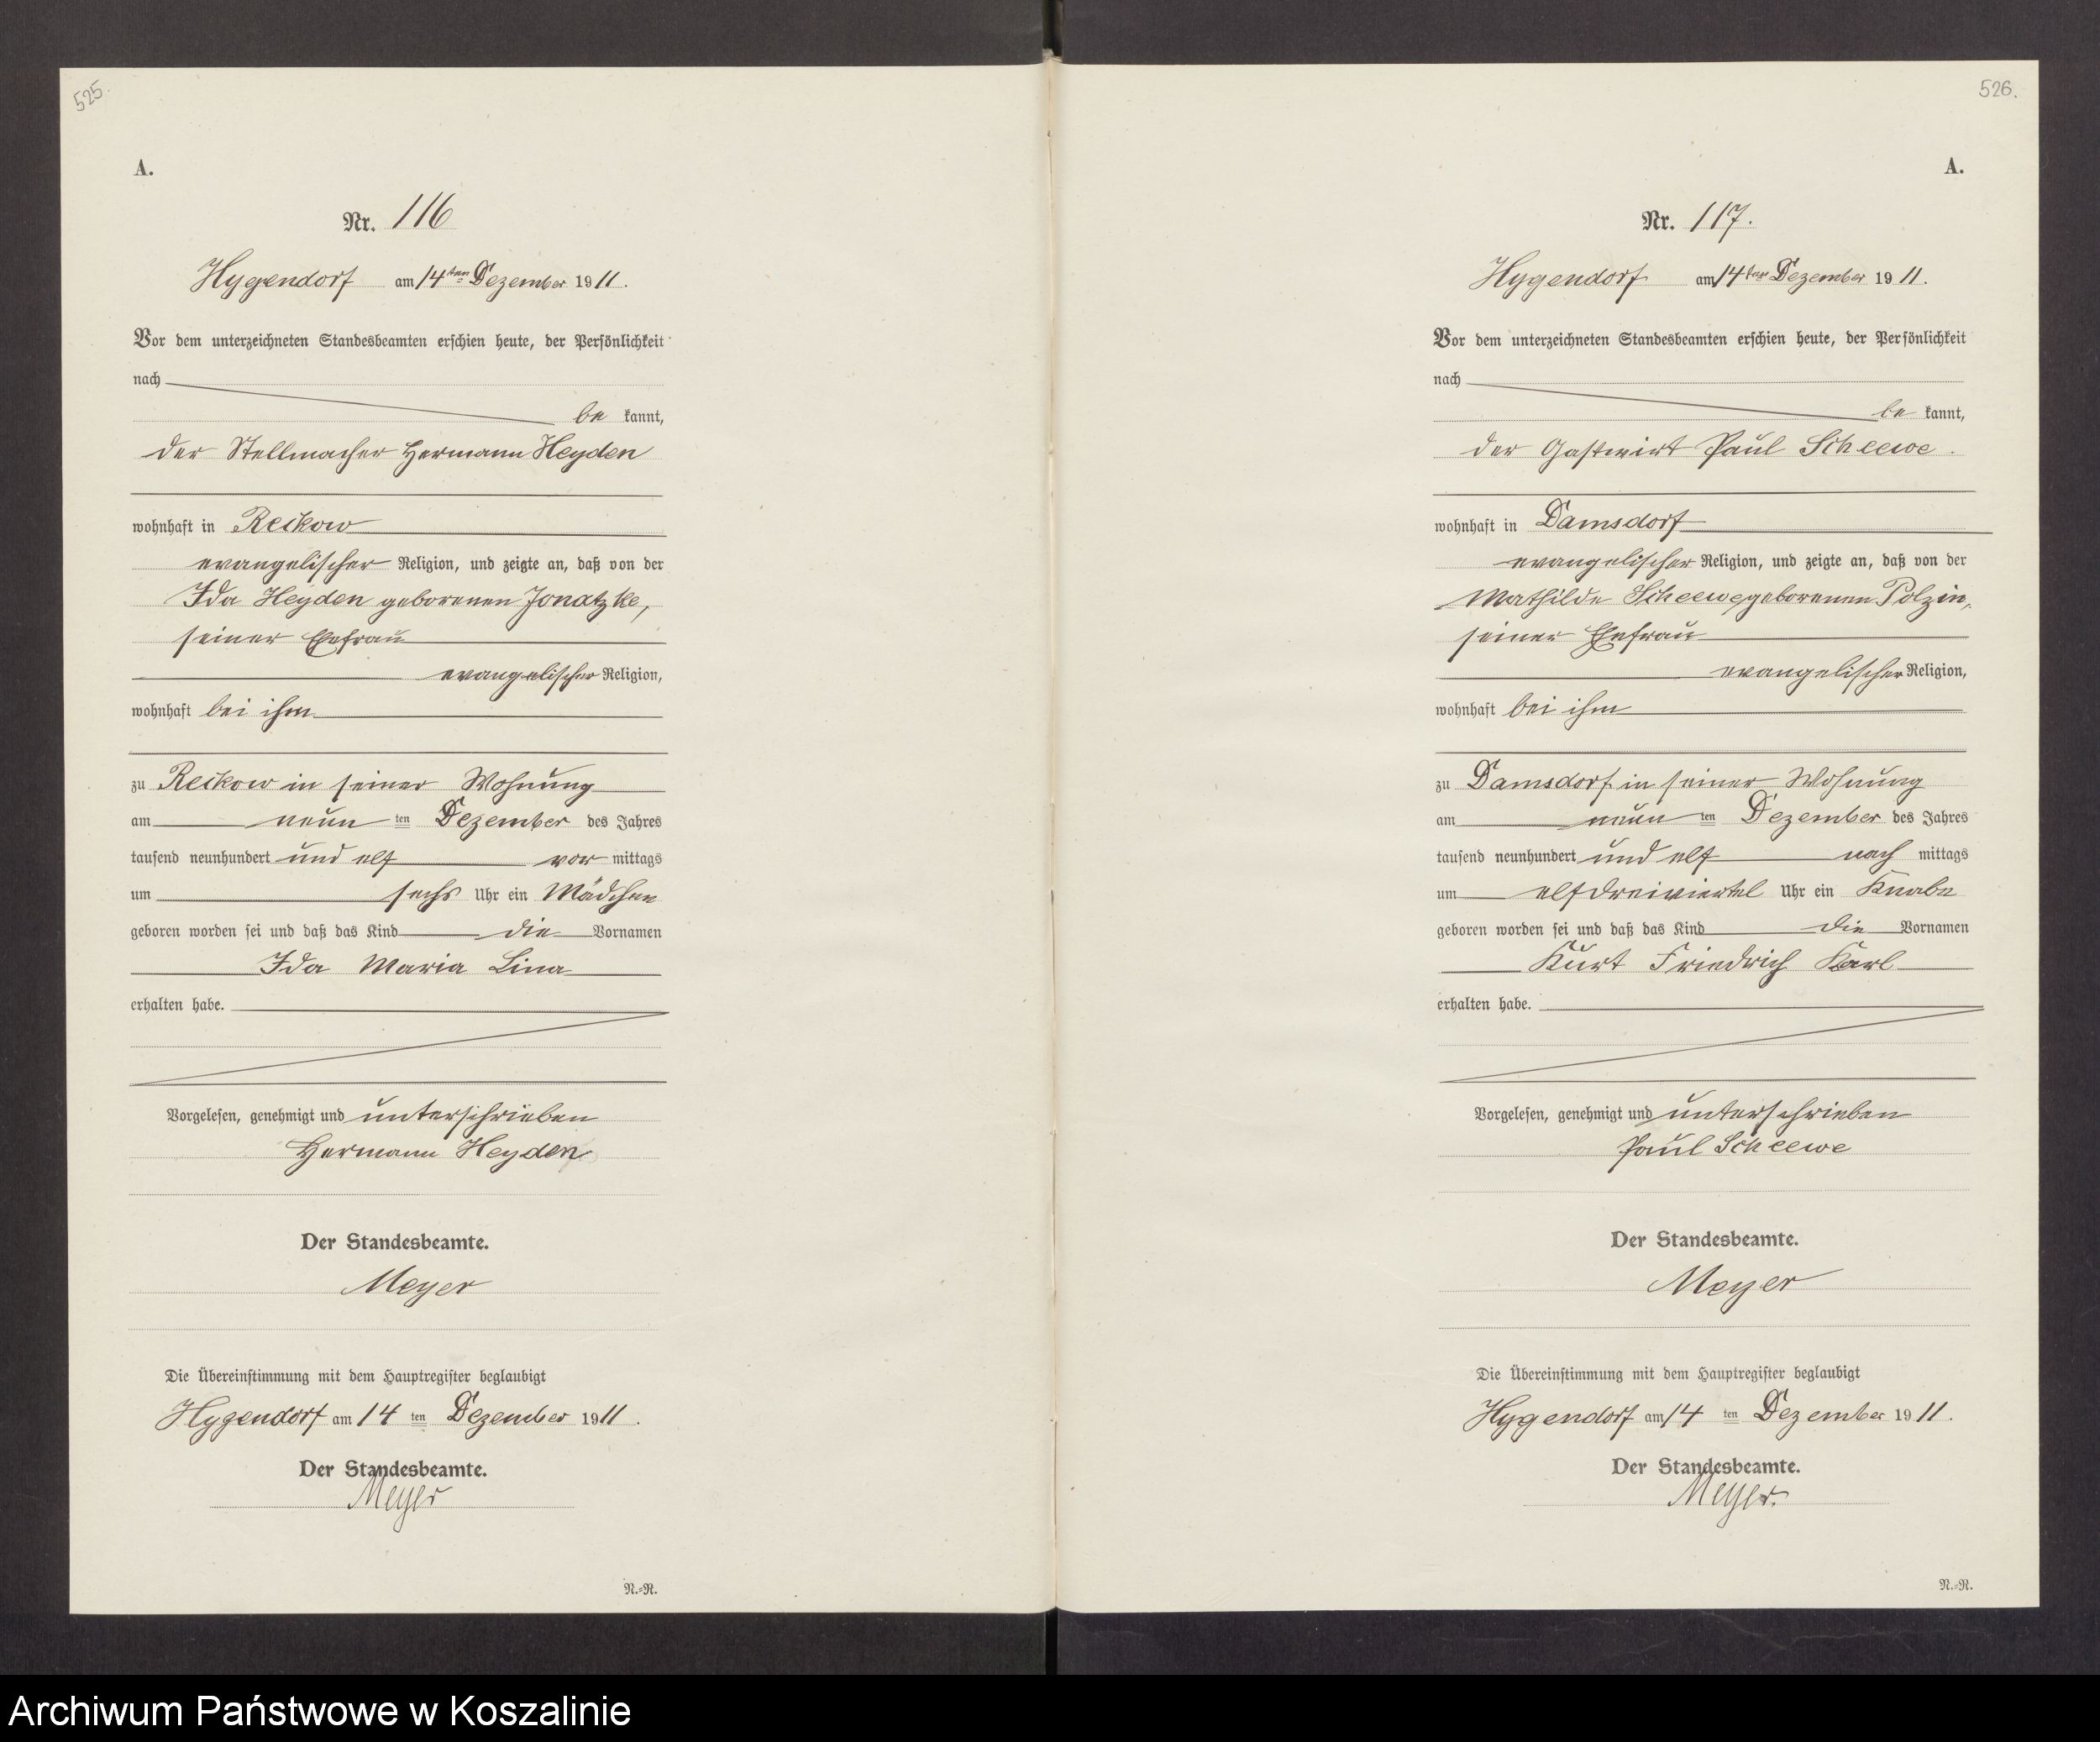 525.
A.
Nr. 116
Hygendorf am 14ten Dezember 1911.
Vor dem unterzeichneten Standesbeamten erschien heute, der Persönlichkeit
nach
be kannt,
der Stellmacher Hermann Heyden
wohnhaft in Reckow
evangelischer Religion, und zeigte an, daß von der
Ida Heyden geborenen Jonatzke,
seiner Ehefrau
evangelischer Religion,
wohnhaft bei ihm
zu Reckow in seiner Wohnung
am neun ten Dezember des Jahres
tausend neunhundert und elf vor mittags
um sechs Uhr ein Mädchen
geboren worden sei und daß das Kind die Vornamen
Ida Maria Lina
erhalten habe.
Vorgelesen, genehmigt und unterschrieben
Hermann Heyden
Der Standesbeamte.
Meyer
Die Übereinstimmung mit dem Hauptregister beglaubigt
Hygendorf am 14 ten Dezember 1911.
Der Standesbeamte.
Meyer
N.=N.
526.
A.
Nr. 117.
Hygendorf am 14ten Dezember 1911.
Vor dem unterzeichneten Standesbeamten erschien heute, der Persönlichkeit
nach
be kannt,
der Gastwirt Paul Scheewe.
wohnhaft in Damsdorf
evangelischer Religion, und zeigte an, daß von der
Mathilde Scheewe geborenen Polzin,
seiner Ehefrau
evangelischer Religion,
wohnhaft bei ihm
zu Damsdorf in seiner Wohnung
am neun ten Dezember des Jahres
tausend neunhundert und elf nach mittags
um elfdreiviertel Uhr ein Knabe
geboren worden sei und daß das Kind die Vornamen
Kurt Friedrich Karl
erhalten habe.
Vorgelesen, genehmigt und unterschrieben
Paul Scheewe
Der Standesbeamte.
Meyer
Die Übereinstimmung mit dem Hauptregister beglaubigt
Hygendorf am 14 ten Dezember 1911.
Der Standesbeamte.
Meyer.
N.=N.
Archiwum Państwowe w Koszalinie